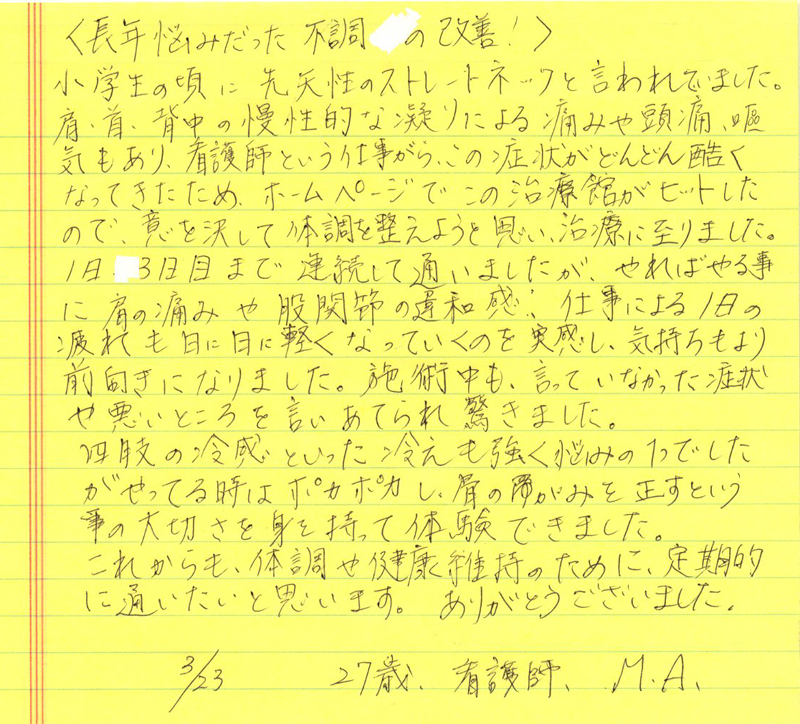 〈長年悩みだった 不調 の改善!〉
小学生の頃に先天性のストレートネックと言われてました。
肩、首、背中の慢性的な凝りによる痛みや頭痛、嘔
気もあり、看護師という仕事がら、この症状がどんどん酷く
なってきたため、ホームページでこの治療館がヒットした
ので、意を決して体調を整えようと思い、治療に至りました。
1日 3日目まで連続して通いましたが、やればやる事
に肩の痛みや股関節の違和感、仕事による1日の
疲れも日に日に軽くなっていくのを実感し、気持ちもより
前向きになりました。施術中も、言っていなかった症状
や悪いところを言いあてられ驚きました。
四肢の冷感といった冷えも強く悩みの1つでした
がやってる時はポカポカし、骨の歪がみを正すという
事の大切さを身を持って体験できました。
これからも、体調や健康維持のために、定期的
に通いたいと思います。ありがとうございました。
3/23 27歳、看護師、M.A.